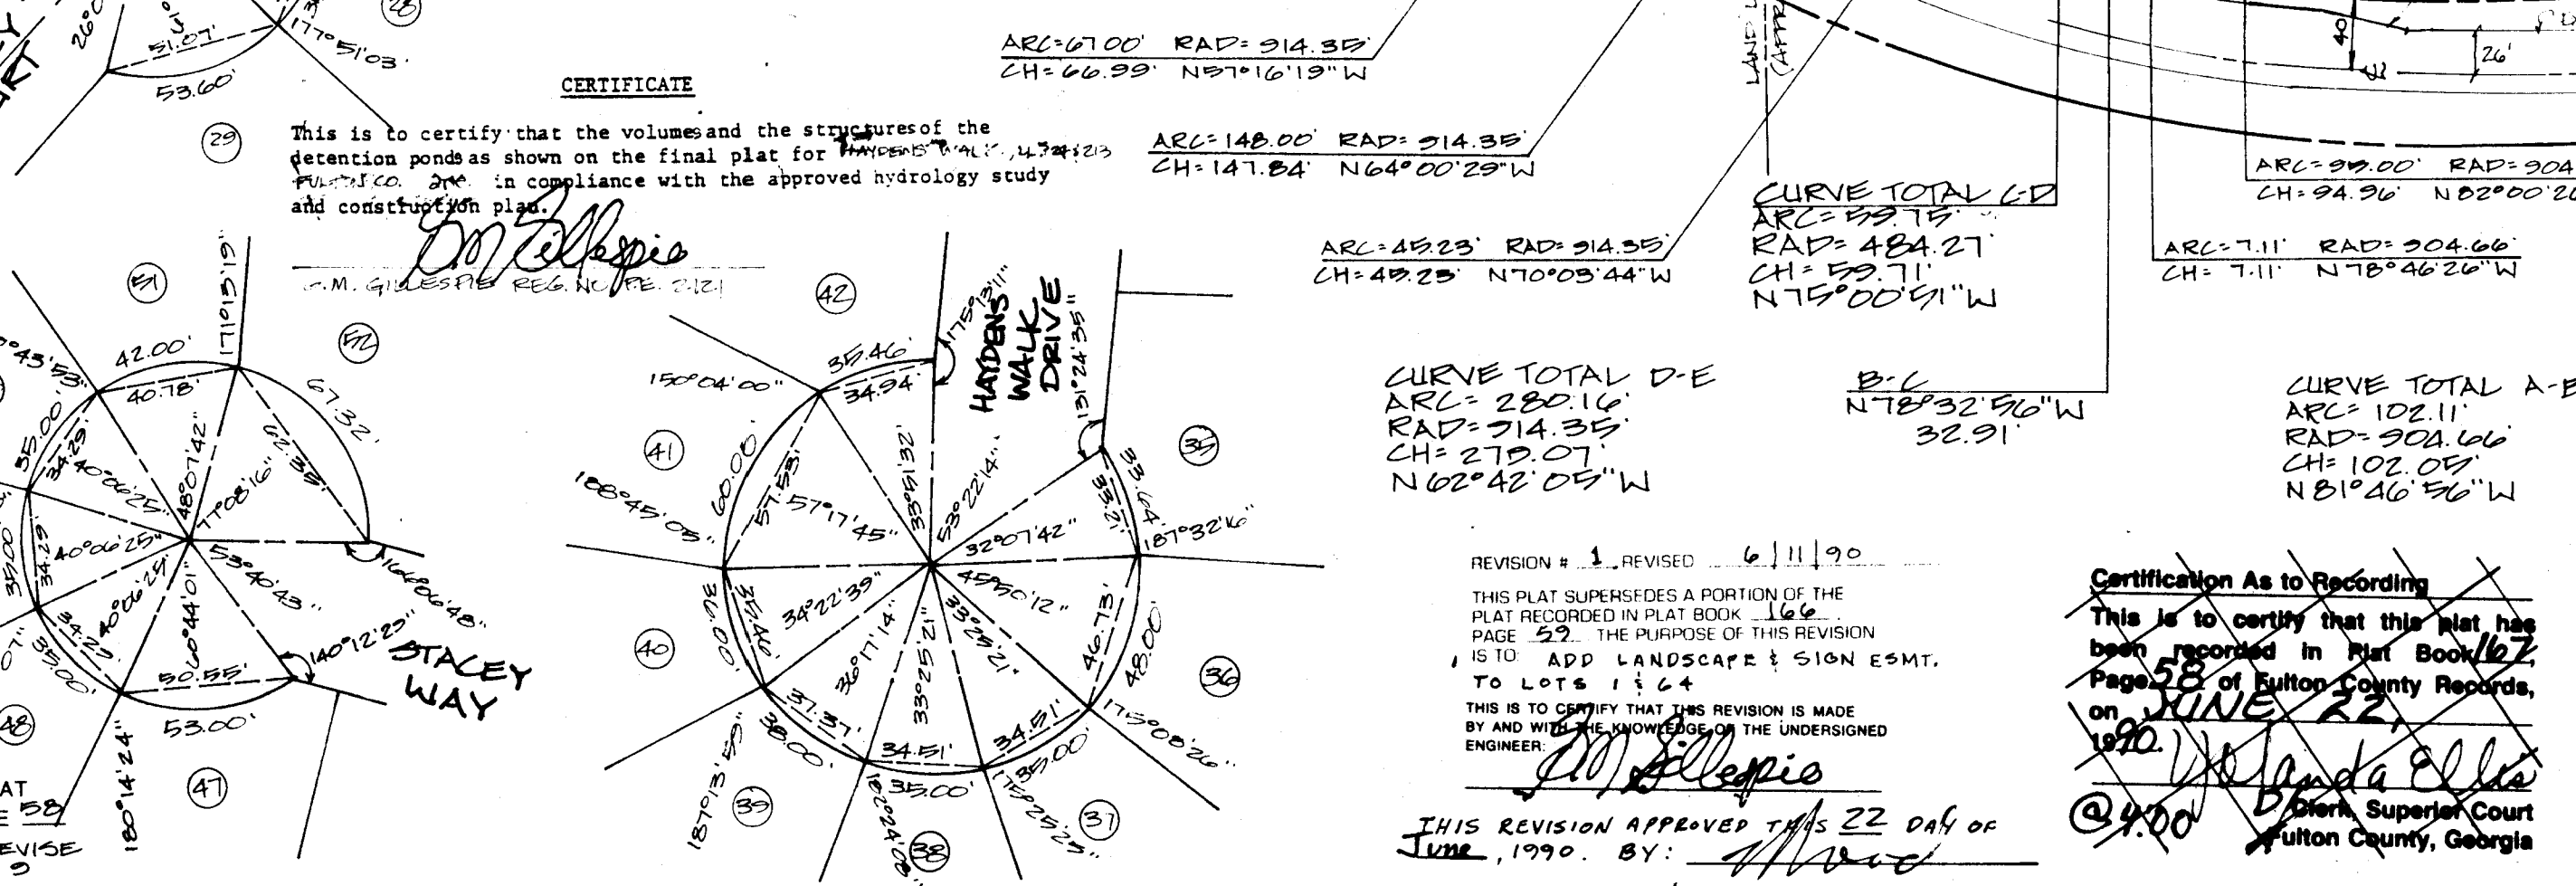 28
51.07'
177°51'03"
53.60'
29
CERTIFICATE
This is to certify that the volumes and the structures of the
detention ponds as shown on the final plat for HAYDENS WALK,
FULTON CO. in compliance with the approved hydrology study
and construction plan.
G.M. GILLESPIE REG. NO. PE. 2121
ARC=67.00' RAD=914.35'
CH=66.99' N57°16'19"W
ARC=148.00' RAD=914.35'
CH=147.84' N64°00'29"W
ARC=45.23' RAD=914.35'
CH=45.23' N70°03'44"W
LAND
CURVE TOTAL C-D
ARC=59.75'
RAD=484.27'
CH=59.71'
N75°00'51"W
40'
26'
ARC=95.00' RAD=904
CH=94.96' N82°00'26
ARC=7.11' RAD=904.66'
CH=7.11' N78°46'26"W
CURVE TOTAL D-E
ARC=280.16'
RAD=914.35'
CH=279.07'
N62°42'05"W
B-C
N78°32'56"W
32.91'
CURVE TOTAL A-B
ARC=102.11'
RAD=904.66'
CH=102.05'
N81°46'56"W
51
171°13'19"
52
°43'53"
42.00'
40.78'
67.32'
62.35'
35.00'
34.29'
40°06'25"
48°07'42"
77°08'16"
35.00'
34.29'
40°06'25"
40°06'25"
60°44'01"
53°40'43"
166°06'48"
140°12'29"
STACEY
WAY
34.29'
35.00'
50.55'
53.00'
48
180°14'24"
47
AT
E 58
EVISE
9
42
175°13'11"
HAYDENS
WALK
DRIVE
131°24'35"
35.46'
34.94'
150°04'00"
41
60.00'
57.53'
57°17'45"
33°51'32"
53°22'14"
32°07'42"
33.64'
33.21'
35
187°32'16"
188°45'05"
40
36.00'
35.46'
34°22'39"
36°17'14"
33°25'21"
33°25'21"
45°50'12"
46.73'
48.00'
36
175°08'26"
37.37'
38.00'
34.51'
35.00'
34.51'
35.00'
187°13'55"
39
182°24'08"
38
178°25'25"
37
REVISION # 1 REVISED 6/11/90
THIS PLAT SUPERSEDES A PORTION OF THE
PLAT RECORDED IN PLAT BOOK 166
PAGE 59 THE PURPOSE OF THIS REVISION
IS TO: ADD LANDSCAPE & SIGN ESMT.
TO LOTS 1 & 64
THIS IS TO CERTIFY THAT THIS REVISION IS MADE
BY AND WITH THE KNOWLEDGE OF THE UNDERSIGNED
ENGINEER:
GM Gillespie
THIS REVISION APPROVED THIS 22 DAY OF
June, 1990. BY:
Certification As to Recording
This is to certify that this plat has
been recorded in Plat Book 167,
Page 58 of Fulton County Records,
on JUNE 22,
1990.
Yolanda Ellis
@4.00 D/Clerk, Superior Court
Fulton County, Georgia